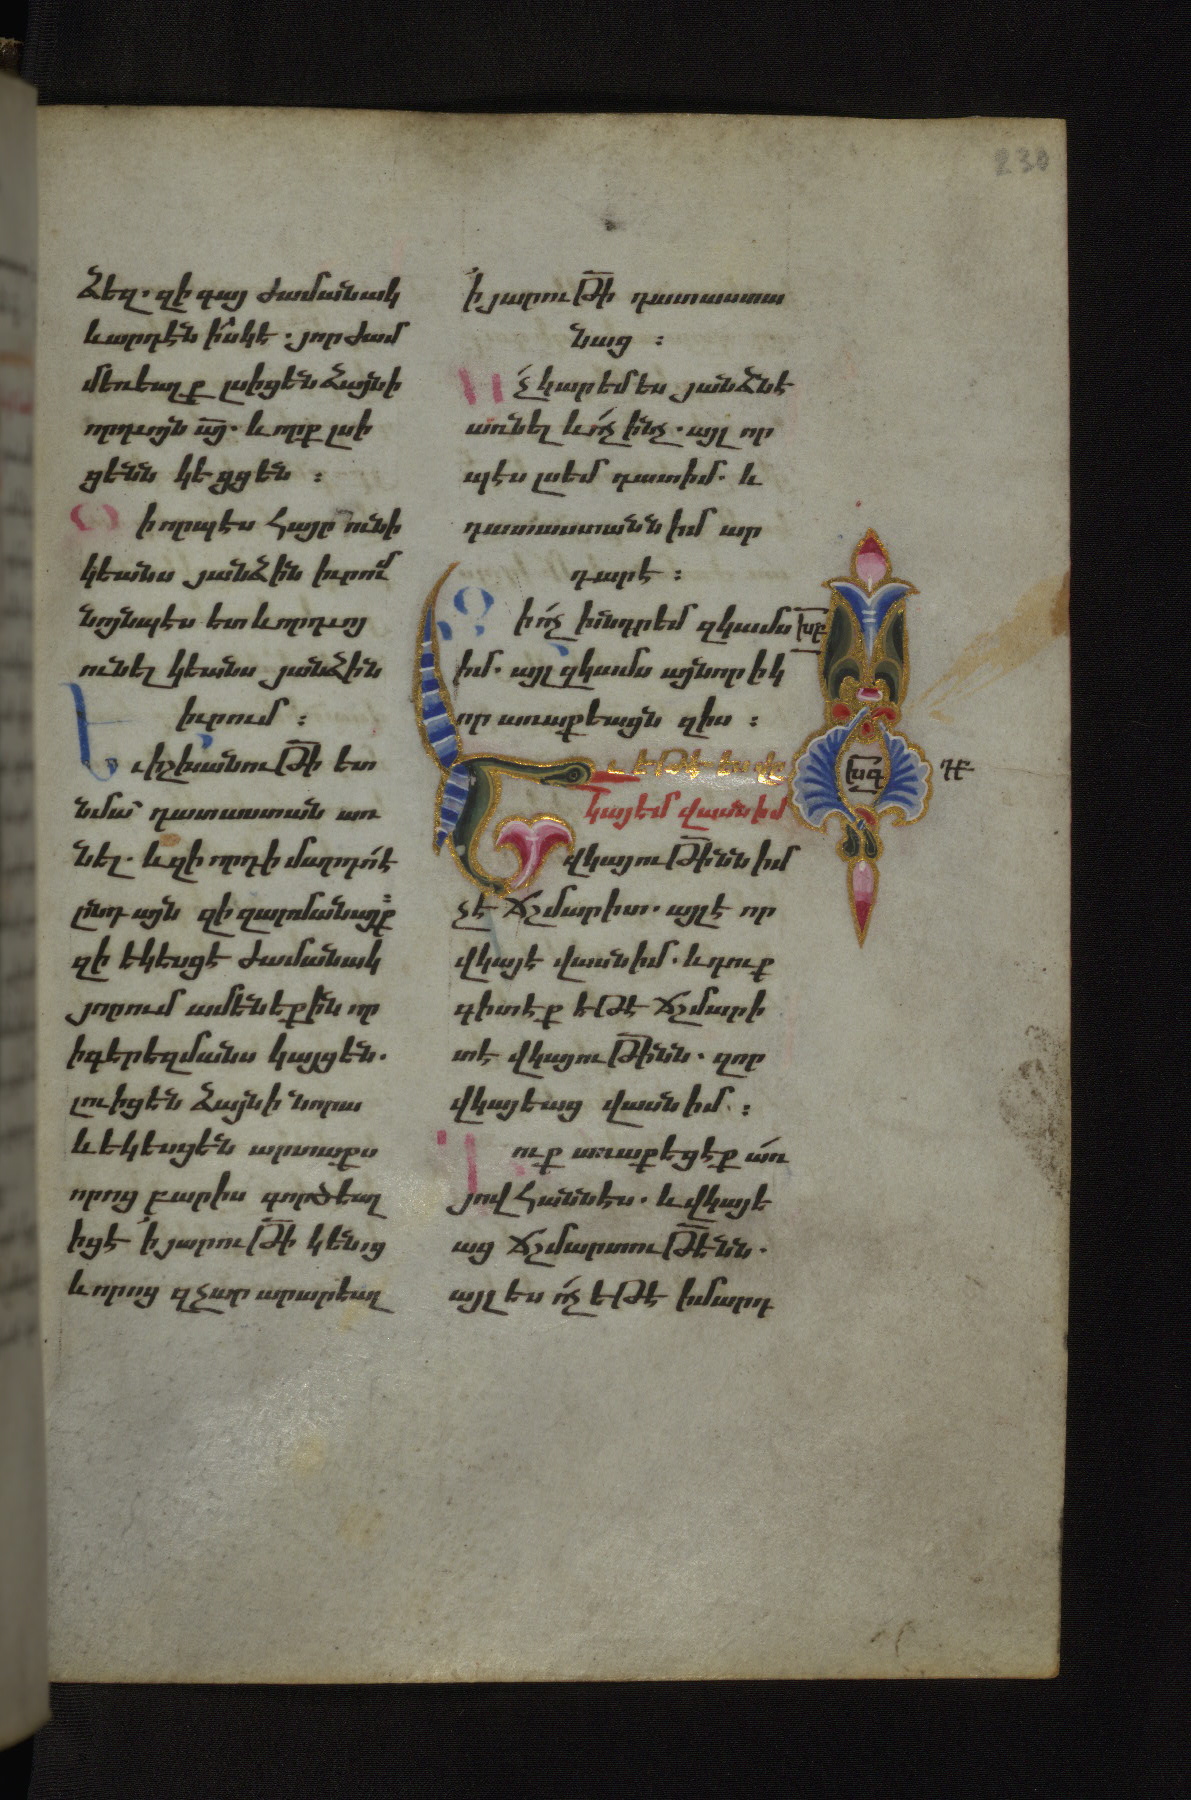 230
ձեզ. զի գայ ժամանակ
և արդէն իսկ է. յորժամ
մեռեալք լսիցեն ձայնի
որդւոյն այ. և ոյք լսի
ցենն կեցցեն :
Զի որպէս հայր ունի
կեանս յանձին իւրում
նոյնպէս ետ և որդւոյ
ունել կեանս յանձին
իւրում :
Եւ իշխանութի ետ
նմա դատաստան առ
նել. և զի որդի մարդոյ է
ընդ այն զի զարմանայք
զի եկեսցէ ժամանակ
յորում ամենեքին որ
ի գերեզմանս կայցեն.
լուիցեն ձայնի նորա
և եկեսցեն արտաքս
որոց բարիս գործեալ
իցէ ՛ի յարութի կենաց
և որոց զչար արարեալ
՛ի յարութի դատաստա
նաց :
Ոչ կարեմ ես յանձնէ
առնել և ոչ ինչ. այլ որ
պէս լսեմ դատիմ. և
դատաստանն իմ ար
դար է :
Զի ոչ խնդրեմ զկամս
իմ. այլ զկամս այնորիկ
որ առաքեացն զիս :
Եւ եթէ ես վը
կայեմ վասն իմ
վկայութինն իմ
չէ ճշմարիտ. այլ է որ
վկայէ վասն իմ. և դուք
գիտէք եթէ ճշմարի
տ է վկայութինն. զոր
վկայեաց վասն իմ :
Դուք առաքեցէք առ
յովհաննէս. և վկայե
աց ճշմարտութենն.
այլ ես ոչ եթէ ի մարդ
խբ
խգ
դ